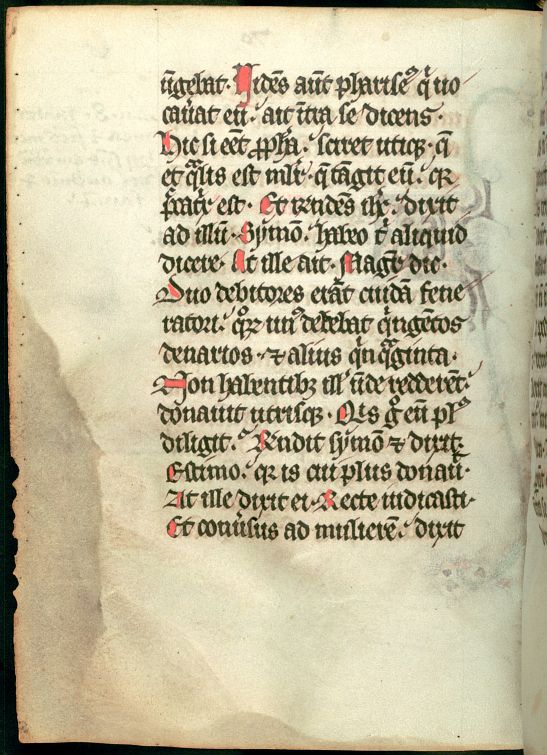 ūgebat. Vidēs aūt pharise᷒ q̇ uo
cau̾at eū. ait īt̾a se dicens.
Hic si eēt ꝓph̾a. sciret utiqꝫ. q̄
et q̾lis est mlr̾. q̄ tāgit eū. qꝛ
p̄cat̾x est. Et r̄ndēs ih̄c. dixit
ad illū. Symō. habeo t̾ aliquid
dicere. At ille ait. Magr̄ dic.
Duo debitores erāt cuidā fene
ratori. q̊ꝝ un᷒ debebat q̇ngētos
denarios. ⁊ alius q̇nq̾ginta.
Non habentibꝫ ill̾ ūde redderēt.
donauit utrisqꝫ. Q̇s g̊ eū pl᷒
diligit. R̄ndit symō ⁊ dixit.
Estimo. qꝛ is cui plus donau̾.
At ille dixit ei. Recte iudicasti.
Et conu̾sus ad mulierē. dixit